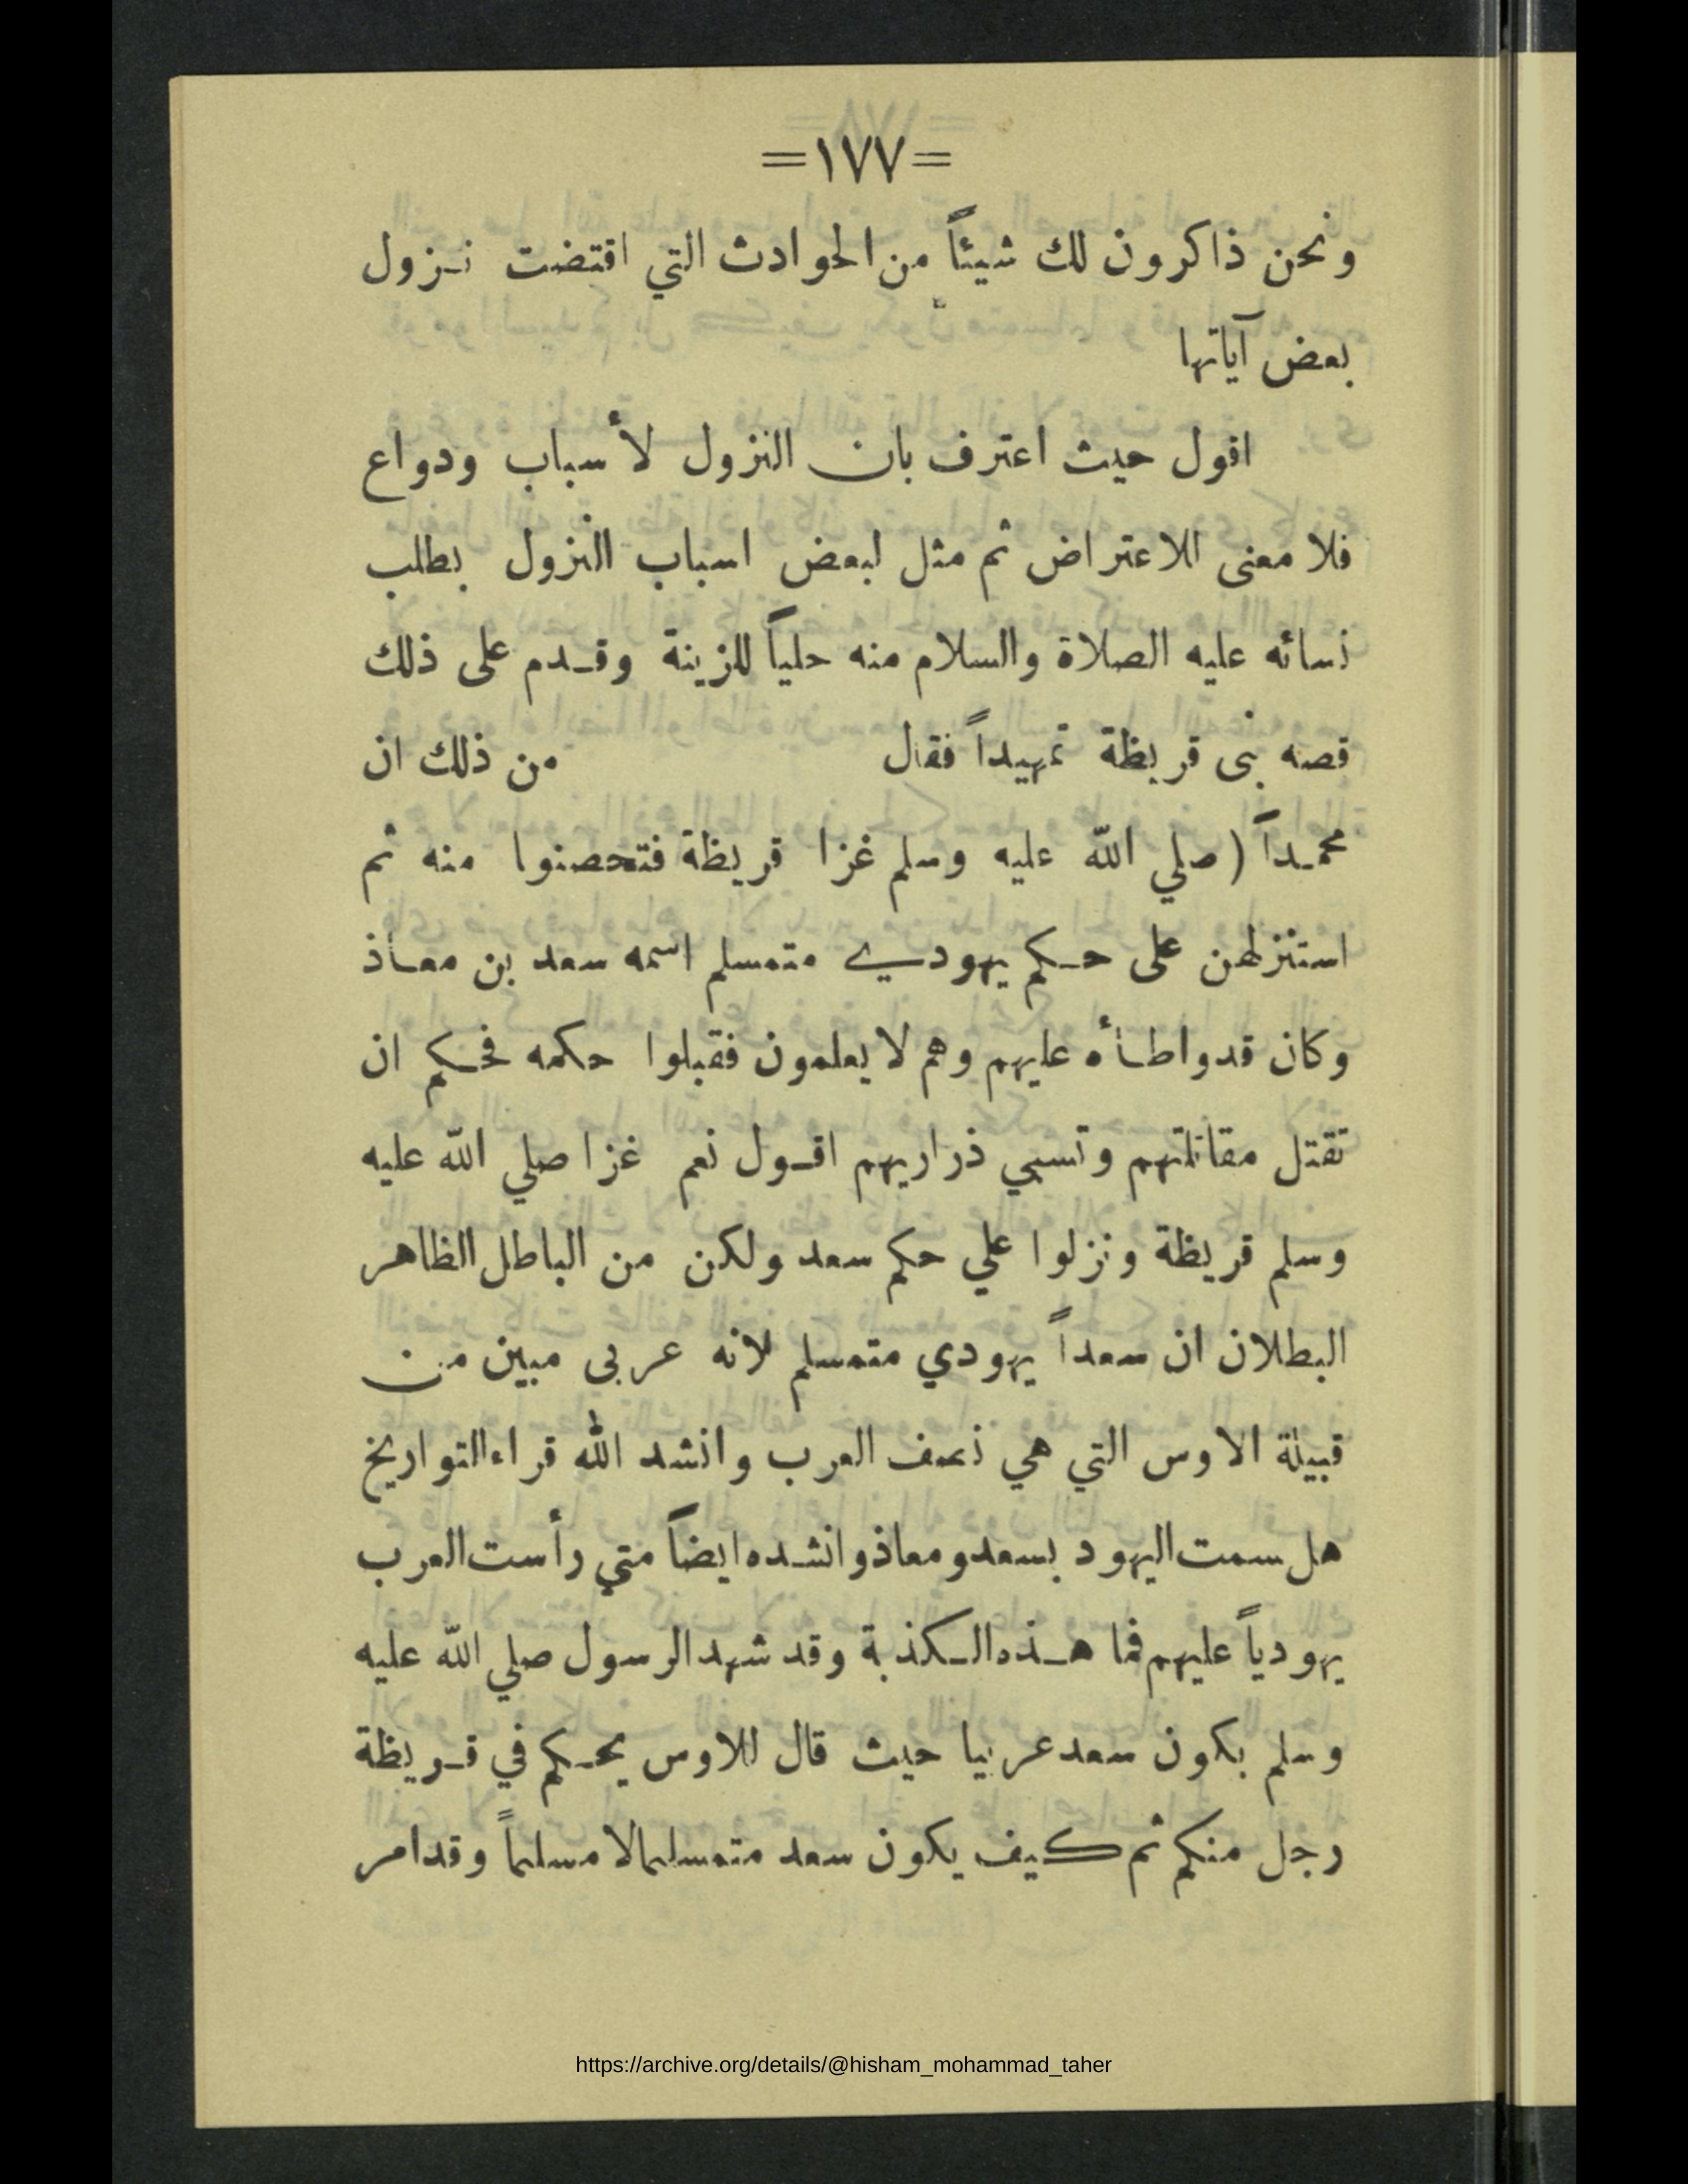 =١٧٧=
ونحن ذاكرون لك شيئاً من الحوادث التي اقتضت نـزول
بعض آياتها
اقول حيث اعترف بان النزول لأسباب ودواع
فلا معنى للاعتراض ثم مثل لبعض اسباب النزول بطلب
نسائه عليه الصلاة والسلام منه حلياً للزينة وقـدم على ذلك
قصه بنى قريظة تمهيداً فقال من ذلك ان
محمـداً (صلي الله عليه وسلم غزا قريظة فتحصنوا منه ثم
استنزلهن على حـكم يهودي متمسلم اسمه سعد بن معـاذ
وكان قدواطـأه عليهم وهم لا يعلمون فقبلوا حكمه فحـكم ان
تقتل مقاتلتهم وتسبي ذراريهم اقـول نعم غزا صلي الله عليه
وسلم قريظة ونزلوا علي حكم سعد ولكن من الباطل الظاهر
البطلان ان سعداً يهودي متمسلم لانه عربى مبين من
قبيلة الاوس التي هي نصف العرب وانشد الله قراء التواريخ
هل سمت اليهود بسعد ومعاذ وانشـده ايضاً متي رأست العرب
يهودياً عليهم فما هـذه الـكذبة وقد شهد الرسول صلي الله عليه
وسلم بكون سعد عربيا حيث قال للاوس يحـكم في قـريظة
رجل منكم ثم كيف يكون سعد متمسلما لا مسلماً وقد امر
https://archive.org/details/@hisham_mohammad_taher